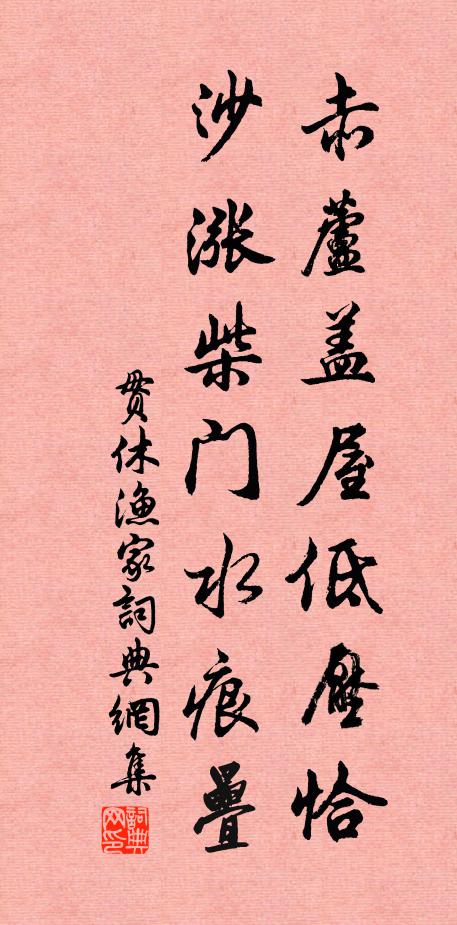 赤蘆蓋屋低壓恰
沙漲柴门水痕疊
貫休漁家詞典網集
詞典网印